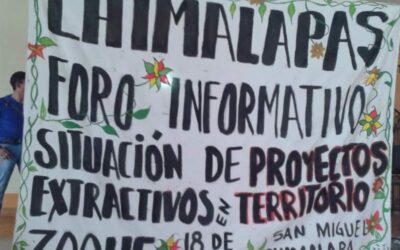 CHIMALAPAS
FORO INFORMATIVO
SITUACIÓN DE PROYECTOS
EXTRACTIVOS EN TERRITORIO
ZOQUE 18 DE SAN MIGUEL